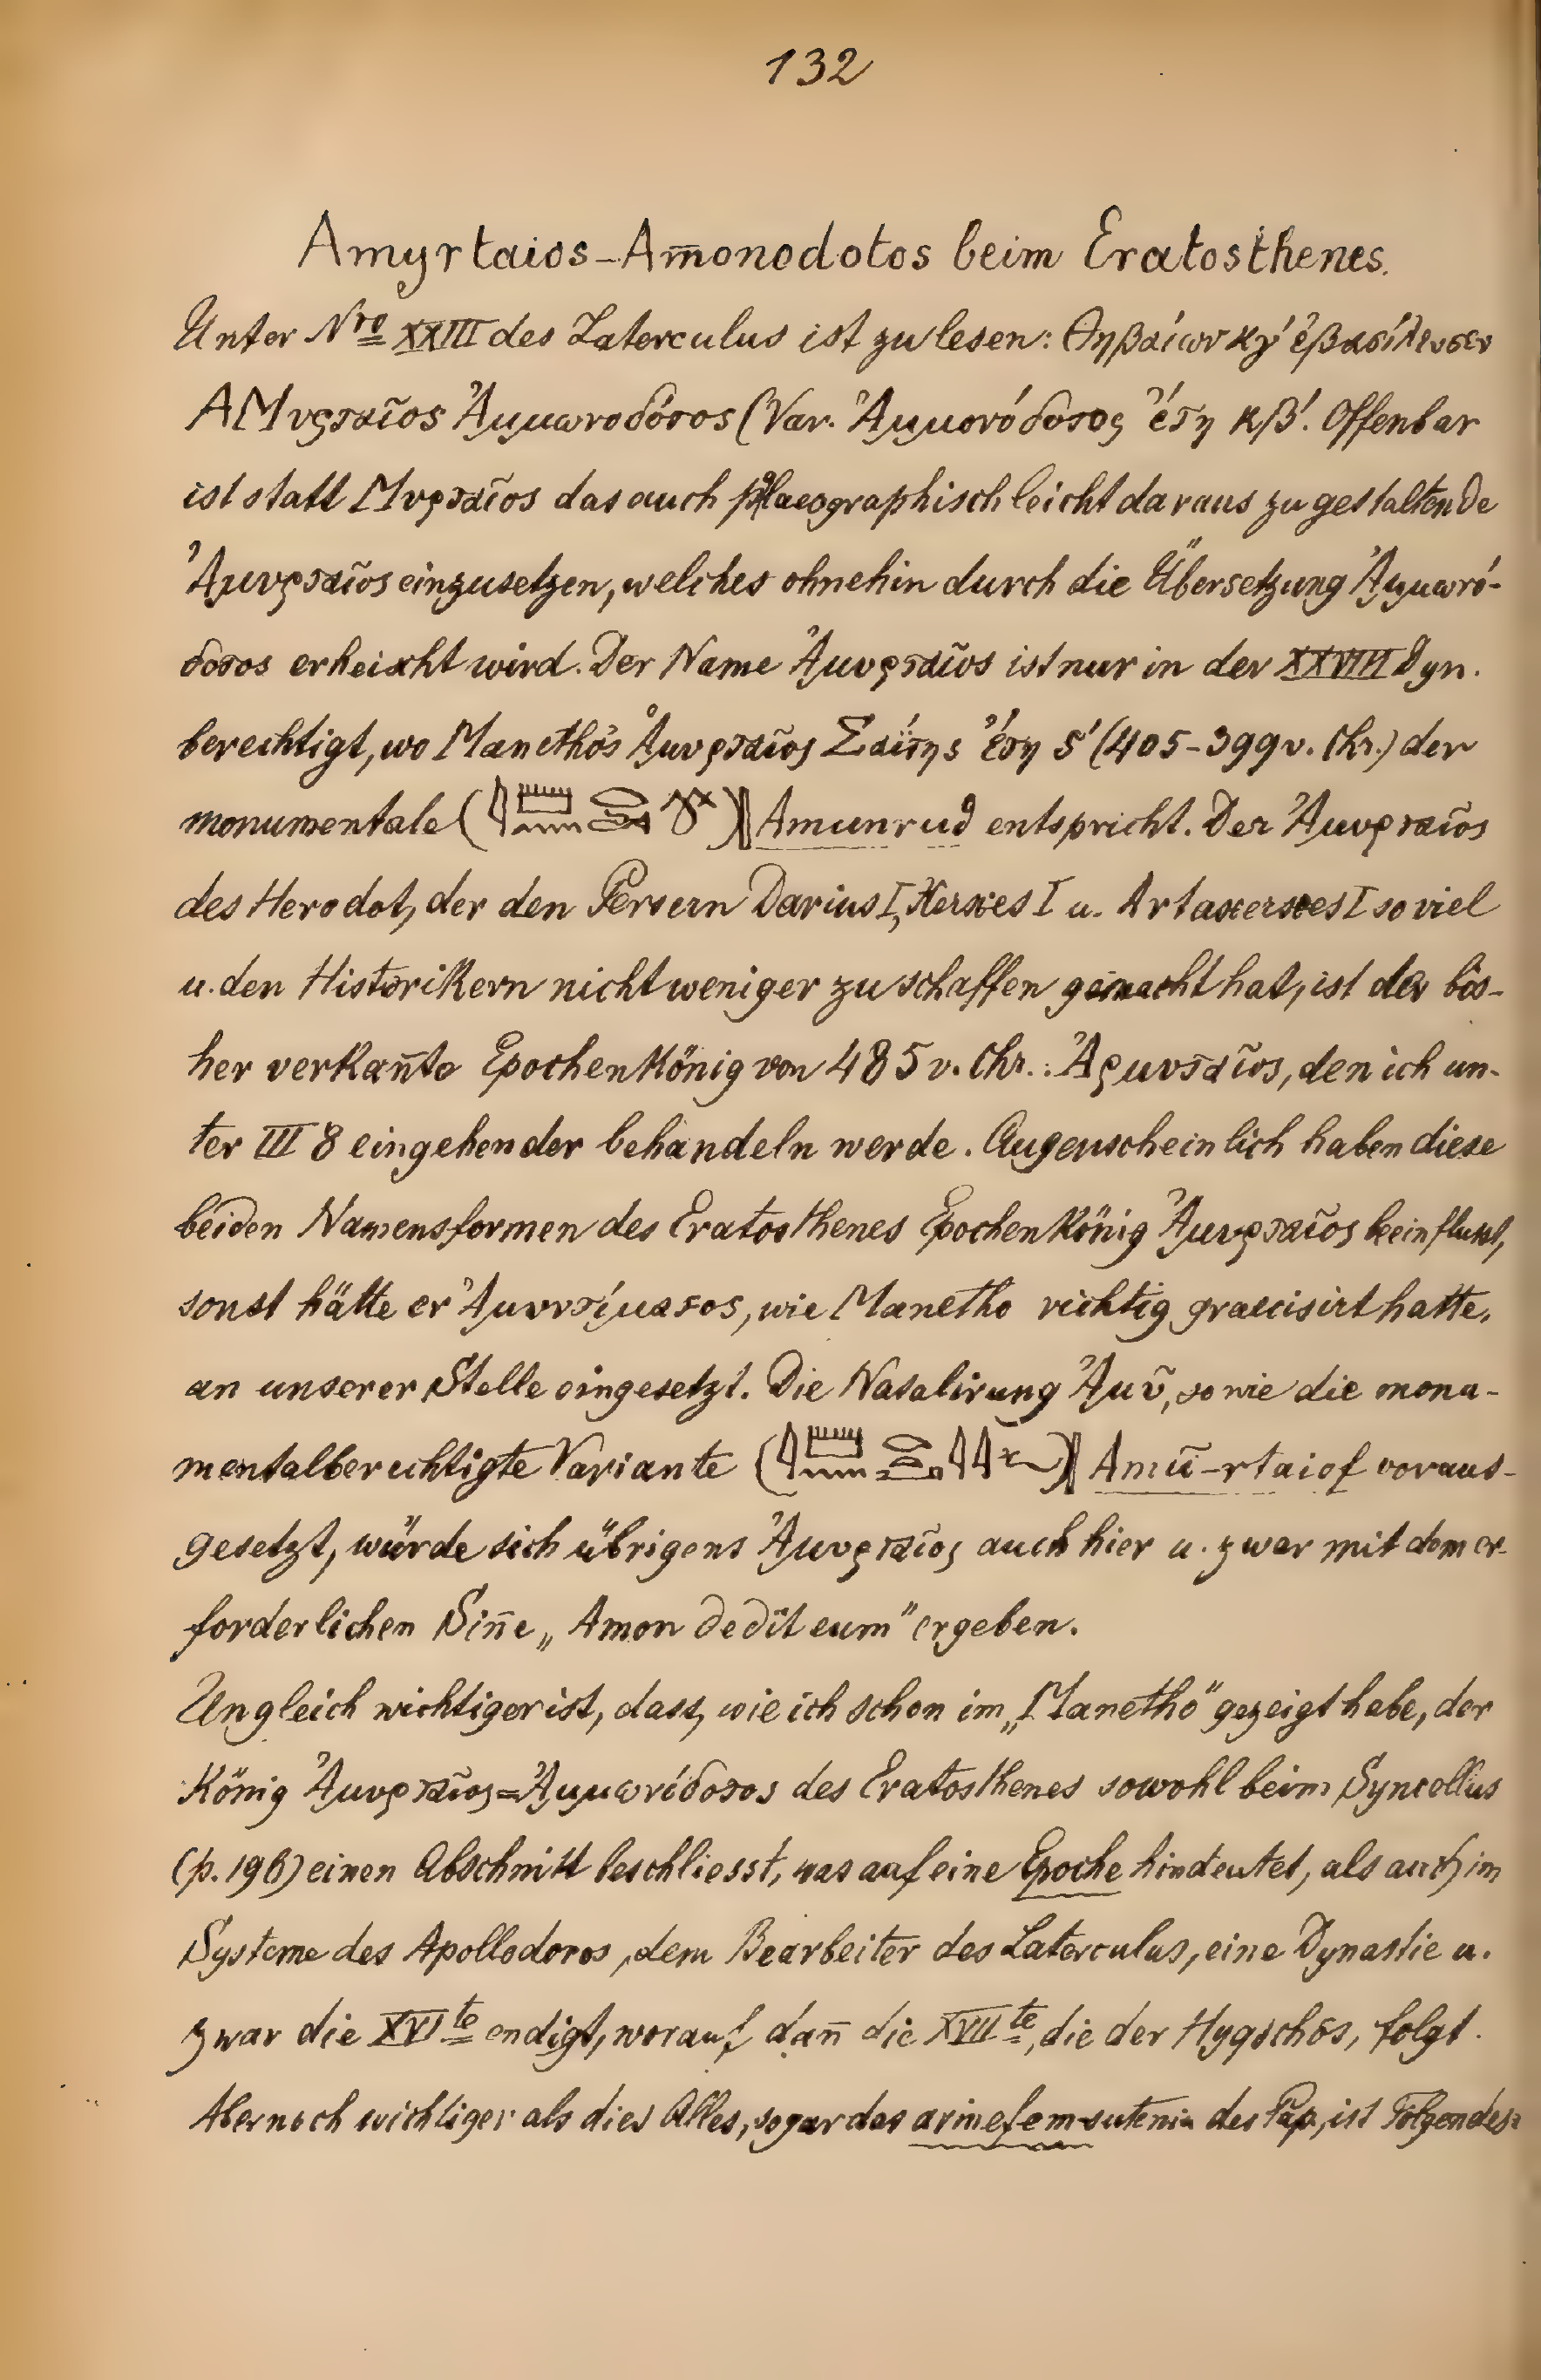 132
Amyrtaios-Am̅onodotos beim Eratosthenes.
Unter Nro XXIII des Laterculus ist zu lesen: Θηβαίων κγ' ἐβασίλευσεν
ΑΜυρταῖος Ἀμμωνοδότος (Var. Ἀμμονόδοτος ἔτη κβ'. Offenbar
ist statt Μυρταῖος das auch palaeographisch leicht daraus zu gestaltende
Ἀμυρταῖος einzusetzen, welches ohnehin durch die Übersetzung Ἀμμωνό-
δοτος erheischt wird. Der Name Ἀμυρταῖος ist nur in der XXVIII Dyn.
berechtigt, wo Manethós Ἀμυρταῖος Σαΐτης ἔτη ϛ' (405-399 v. Chr.) der
monumentale ( ) Amunrud entspricht. Der Ἀμυρταῖος
des Herodot, der den Persern Darius I, Xerxes I u. Artaxerxes I so viel
u. den Historikern nicht weniger zu schaffen gemacht hat, ist der bis-
her verkan̅te Epochenkönig von 485 v. Chr.: Ἀρμυταῖος, den ich un-
ter III 8 eingehender behandeln werde. Augenscheinlich haben diese
beiden Namensformen des Eratosthenes Epochenkönig Ἀμυρταῖος beeinflusst,
sonst hätte er Ἀμυντίμαιος, wie Manetho richtig graecisirt hatte,
an unserer Stelle eingesetzt. Die Nasalirung Ἀμυ̃, sowie die monu-
mentalberechtigte Variante ( ) Amũ-rtaiof voraus-
gesetzt, würde sich übrigens Ἀμυρταῖος auch hier u. zwar mit dem er-
forderlichen Sin̅e „Amon dedit eum" ergeben.
Ungleich wichtiger ist, dass, wie ich schon im „Manetho" gezeigt habe, der
König Ἀμυρταῖος=Ἀμμωνίδοτος des Eratosthenes sowohl beim Syncellus
(p. 196) einen Abschnitt beschliesst, was auf eine Epoche hindeutet, als auch im
Systeme des Apollodoros, dem Bearbeiter des Laterculus, eine Dynastie u.
zwar die XVIte endigt, worauf dan̅ die XVIIte, die der Hyqschôs, folgt.
Aber noch wichtiger als dies Alles, sogar das arinefem-sutenia des Pap., ist Folgendes: